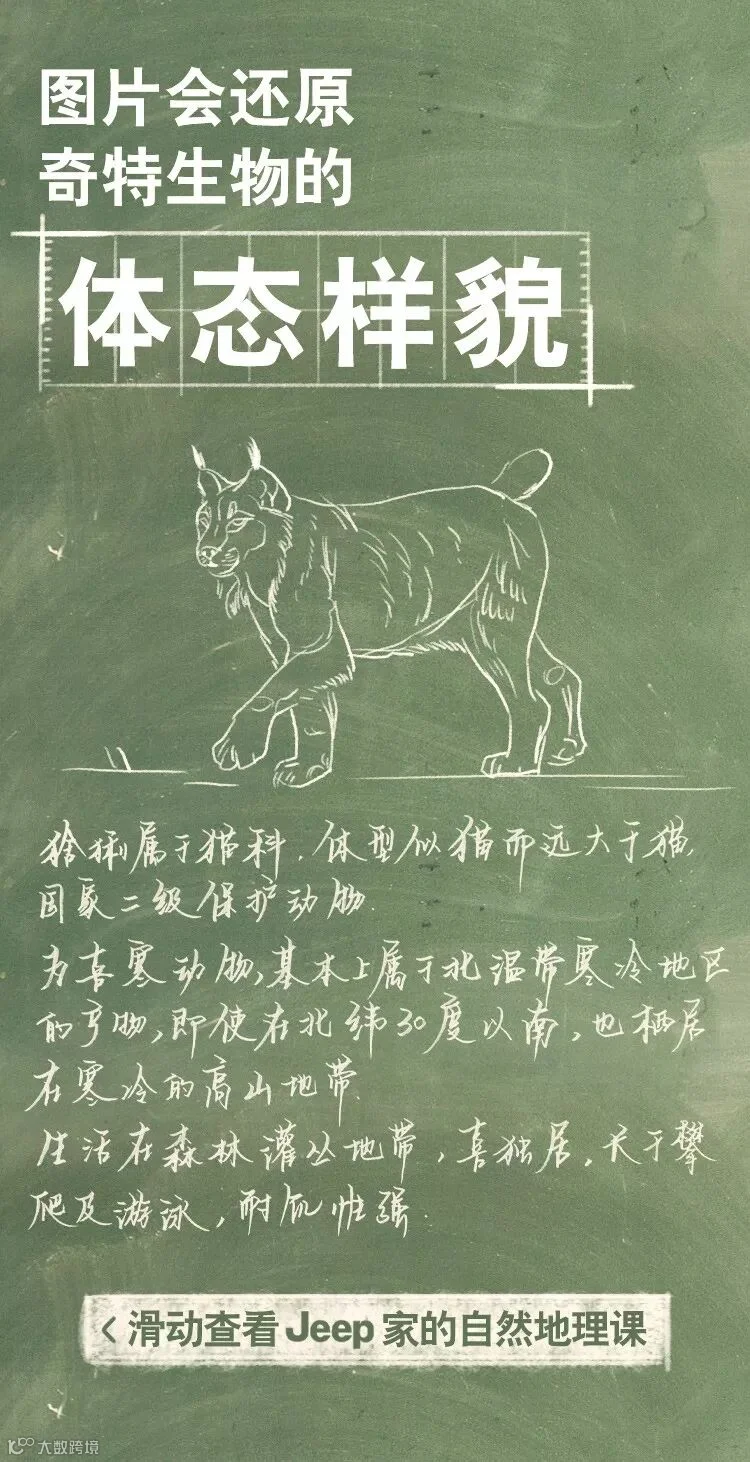 图片会还原
奇特生物的
体态样貌
猞猁属于猫科，体型似猫而远大于猫，
国家二级保护动物.
为喜寒动物，基本上属于北温带寒冷地区
的产物，即使在北纬30度以南，也栖居
在寒冷的高山地带.
生活在森林灌丛地带，喜独居，长于攀
爬及游泳，耐饥性强.
< 滑动查看 Jeep 家的自然地理课
大数跨境